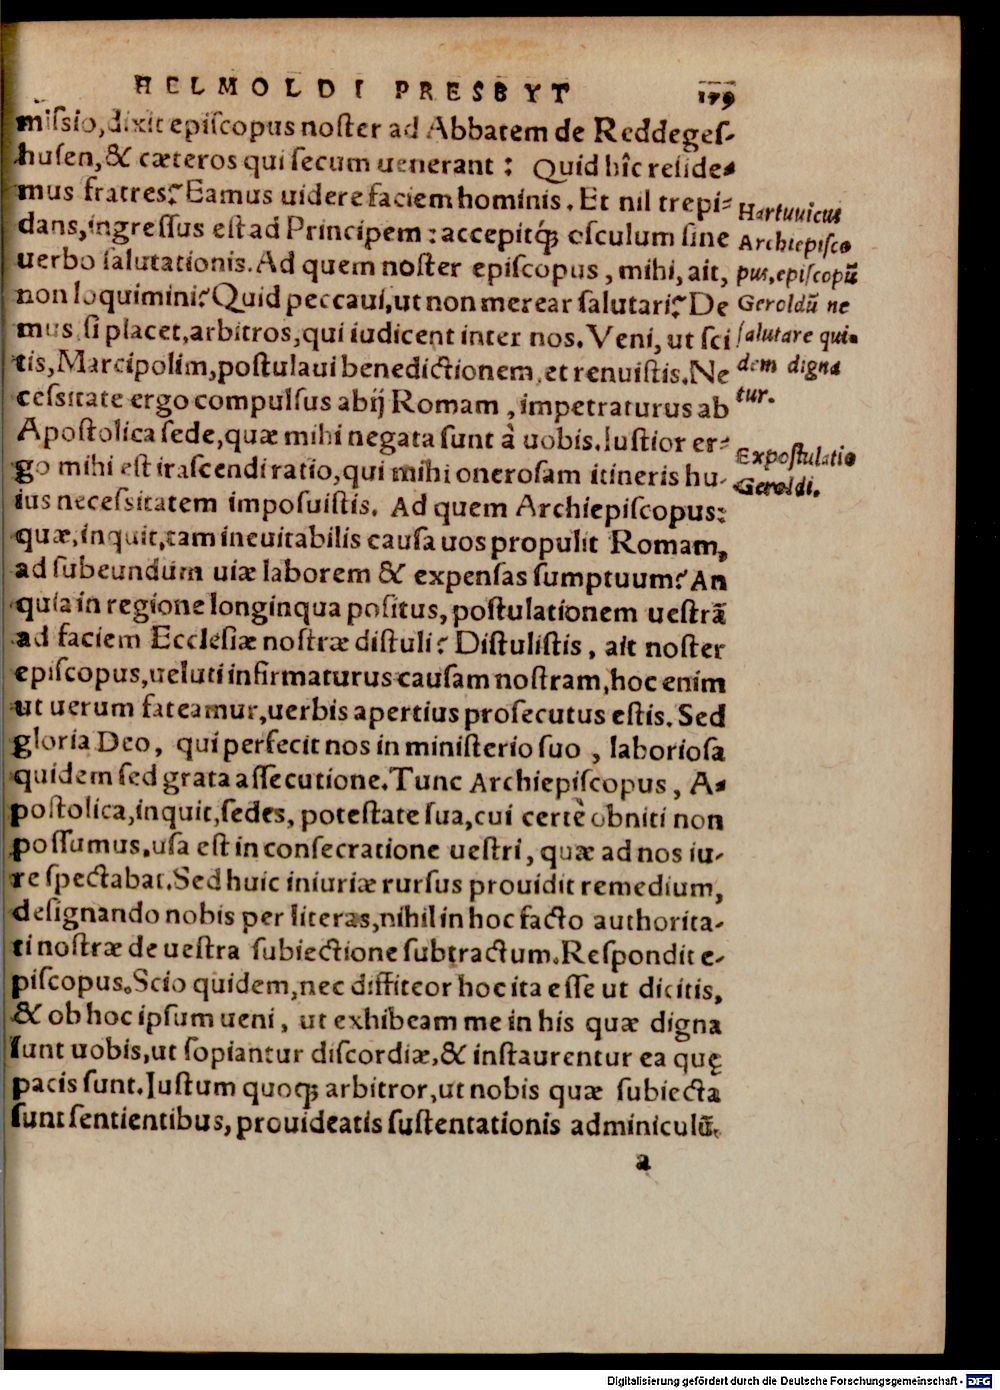 HELMOLDI PRESBYT 179
missio, dixit episcopus noster ad Abbatem de Reddeges-
husen, & cæteros qui secum uenerant: Quid hîc reside-
mus fratres? Eamus uidere faciem hominis. Et nil trepi-
dans, ingressus est ad Principem: accepitq́; osculum sine
uerbo salutationis. Ad quem noster episcopus, mihi, ait,
non loquimini? Quid peccaui, ut non merear salutari? De
mus si placet, arbitros, qui iudicent inter nos. Veni, ut sci
tis, Marcipolim, postulaui benedictionem, et renuistis. Ne
cessitate ergo compulsus abij Romam, impetraturus ab
Apostolica sede, quæ mihi negata sunt à uobis. Iustior er-
go mihi est irascendi ratio, qui mihi onerosam itineris hu-
ius necessitatem imposuistis. Ad quem Archiepiscopus:
quæ, inquit, tam ineuitabilis causa uos propulit Romam,
ad subeundum uiæ laborem & expensas sumptuum? An
quia in regione longinqua positus, postulationem uestrã
ad faciem Ecclesiæ nostræ distuli? Distulistis, ait noster
episcopus, ueluti infirmaturus causam nostram, hoc enim
ut uerum fateamur, uerbis apertius prosecutus estis. Sed
gloria Deo, qui perfecit nos in ministerio suo, laboriosa
quidem sed grata assecutione. Tunc Archiepiscopus, A-
postolica, inquit, sedes, potestate sua, cui certè obniti non
possumus, usa est in consecratione uestri, quæ ad nos iu-
re spectabat. Sed huic iniuriæ rursus prouidit remedium,
designando nobis per literas, nihil in hoc facto authorita-
ti nostræ de uestra subiectione subtractum. Respondit e-
piscopus. Scio quidem, nec diffiteor hoc ita esse ut dicitis,
& ob hoc ipsum ueni, ut exhibeam me in his quæ digna
sunt uobis, ut sopiantur discordiæ, & instaurentur ea quę
pacis sunt. Iustum quoq; arbitror, ut nobis quæ subiecta
sunt sentientibus, prouideatis sustentationis adminiculũ.
a
Hartuuicus
Archiepisco
pus, episcopũ
Geroldũ ne
salutare qui-
dem digna
tur.
Expostulatio
Geroldi.
Digitalisierung gefördert durch die Deutsche Forschungsgemeinschaft - DFG